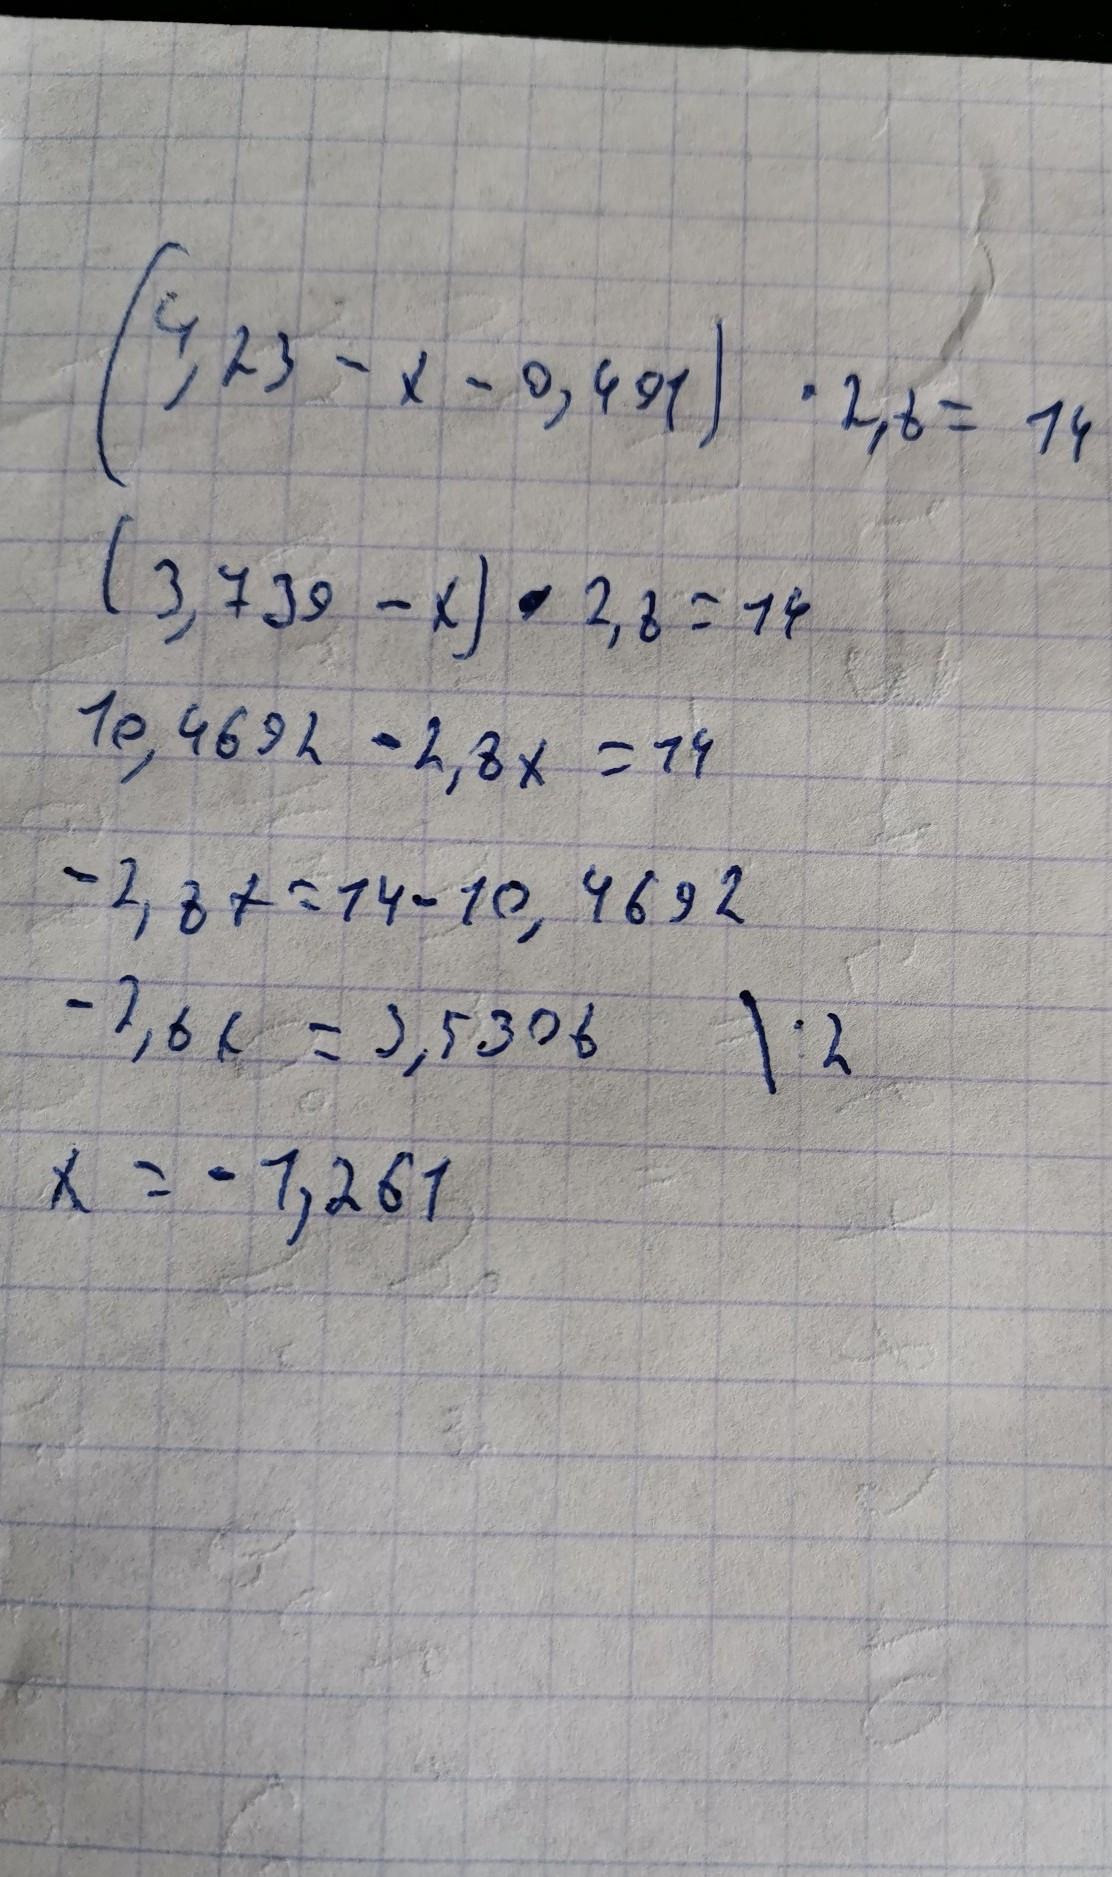 (4,23 - x - 0,491) · 2,8 = 14
(3,739 - x) · 2,8 = 14
10,4692 - 2,8x = 14
-2,8x = 14 - 10,4692
-2,8x = 3,5308 | : 2
x = -1,261